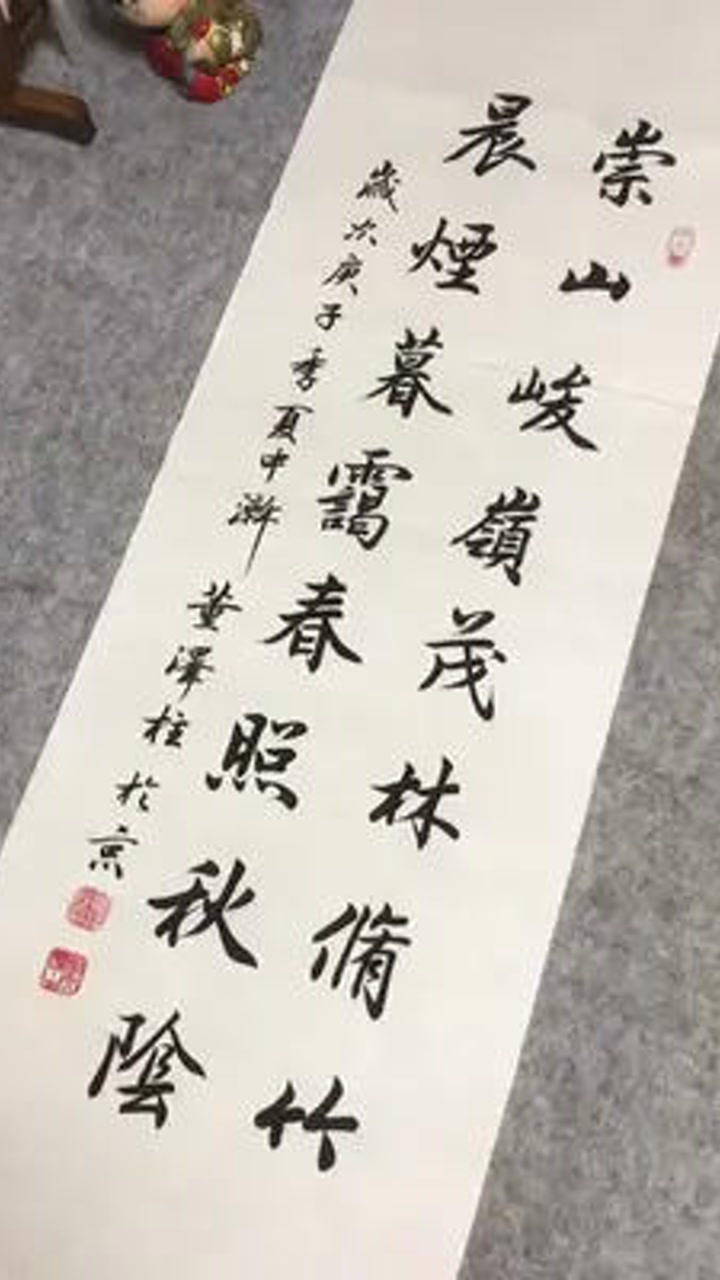 崇山峻嶺茂林脩竹
晨煙暮靄春照秋陰
歲次庚子季夏中澣董澤柱於京